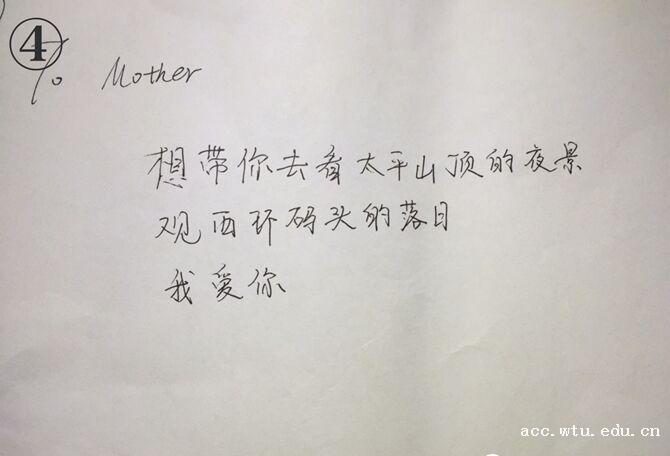 ④
To Mother
想带你去看太平山顶的夜景
观西环码头的落日
我爱你
acc.wtu.edu.cn